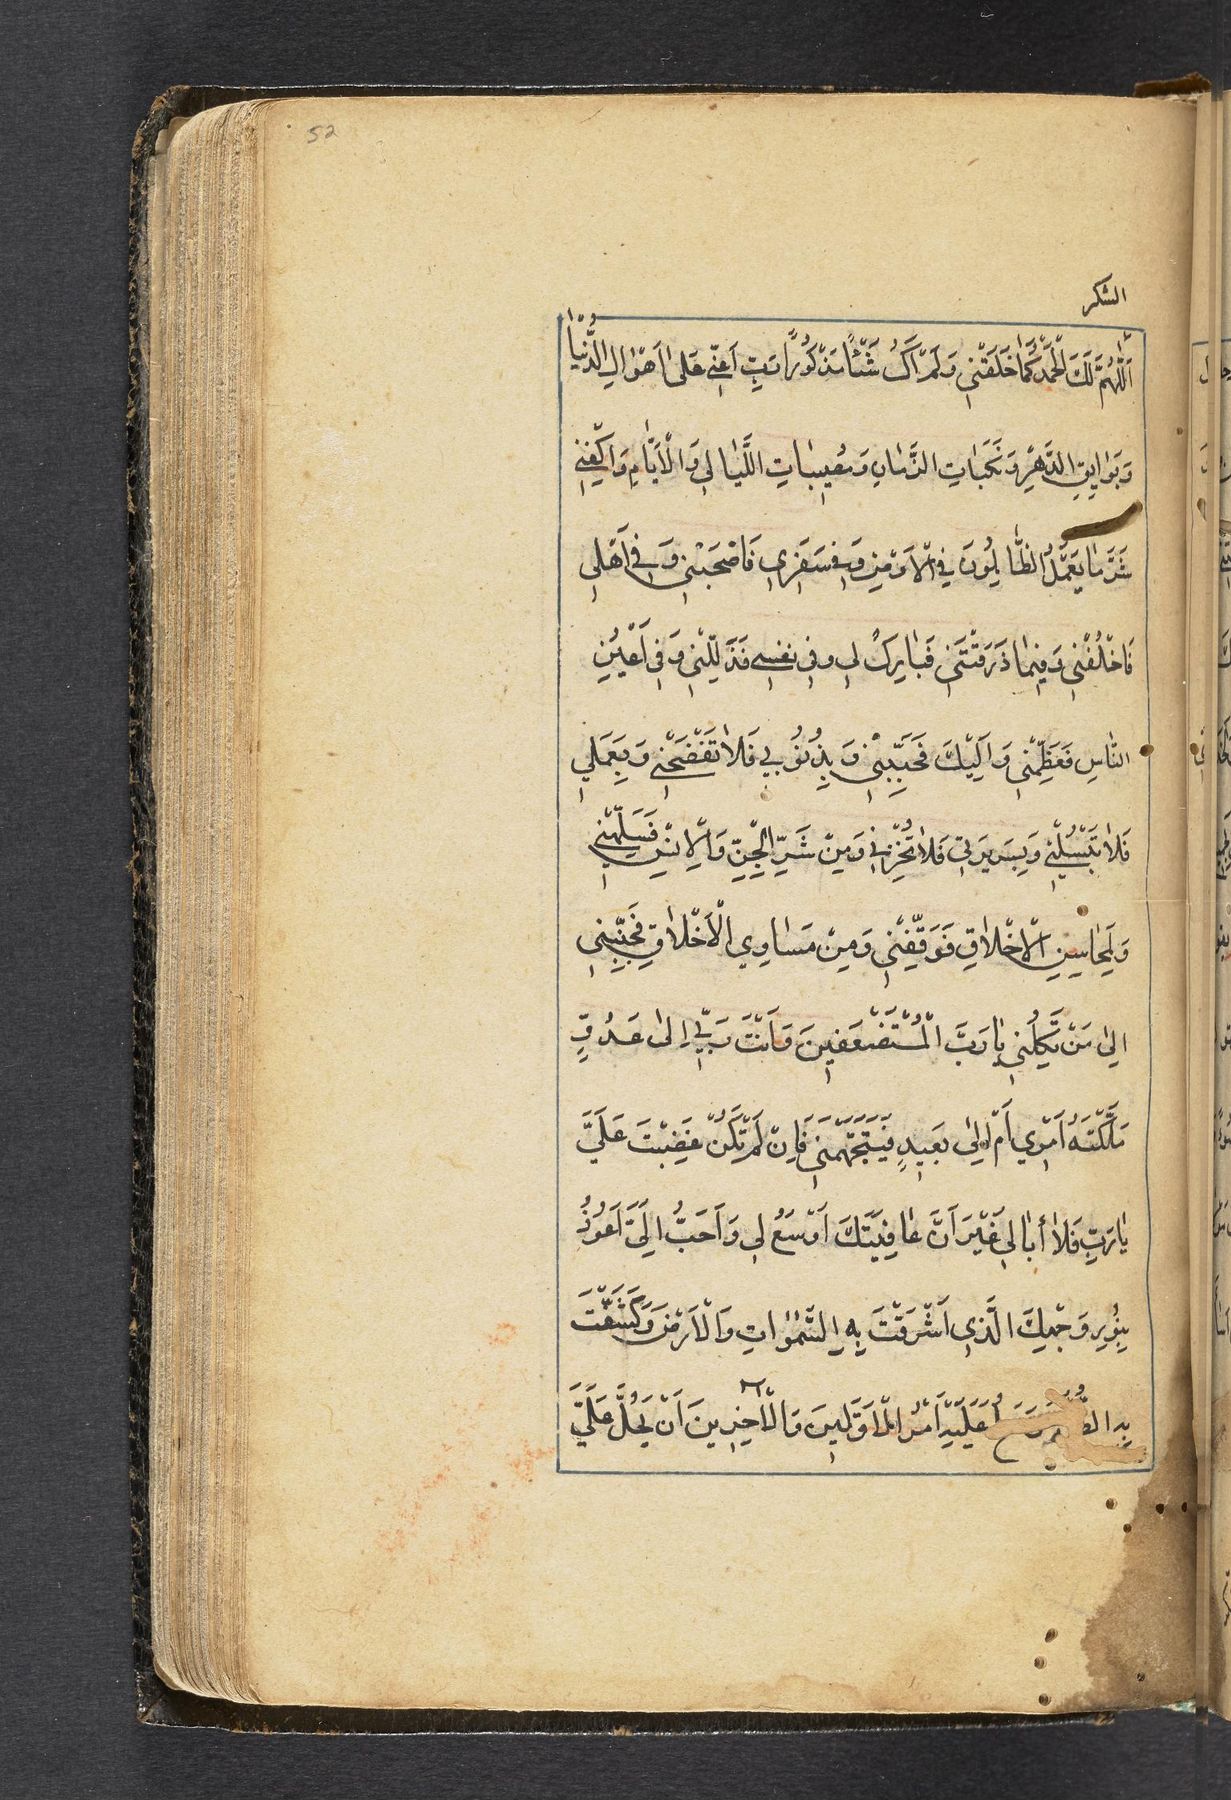 52
الشكر
اَللّٰهُمَّ لَكَ الْحَمْدُ كَمٰا خَلَقْتَنِي وَلَمْ اَكُ شَيْئًا مَذْكُورًا رَبِّ اَعِنِّي عَلىٰ اَهْوٰالِ الدُّنْيٰا
وَبَوٰايِقِ الدَّهْرِ وَنَكَبٰاتِ الزَّمٰانِ وَمُصِيبٰاتِ اللَّيٰالِي وَالْاَيّٰامِ وَاكْفِنِي
شَرَّ مٰا يَعْمَلُ الظّٰالِمُونَ فِي الْاَرْضِ وَفِي سَفَرِي فَاصْحَبْنِي وَفِي اَهْلِي
فَاخْلُفْنِي وَفِيمٰا رَزَقْتَنِي فَبٰارِكْ لِي وَفِي نَفْسِي فَذَلِّلْنِي وَفِي اَعْيُنِ
النّٰاسِ فَعَظِّمْنِي وَاِلَيْكَ فَحَبِّبْنِي وَبِذُنُوبِي فَلاٰ تَفْضَحْنِي وَبِعَمَلِي
فَلاٰ تُبْسِلْنِي وَبِسَرِيرَتِي فَلاٰ تُخْزِنِي وَمِنْ شَرِّ الْجِنِّ وَالْاِنْسِ فَسَلِّمْنِي
وَلِمَحٰاسِنِ الْاَخْلاٰقِ فَوَفِّقْنِي وَمِنْ مَسٰاوِي الْاَخْلاٰقِ فَجَنِّبْنِي
اِلىٰ مَنْ تَكِلُنِي يٰا رَبَّ الْمُسْتَضْعَفِينَ وَاَنْتَ رَبِّي اِلىٰ عَدُوٍّ
مَلَّكْتَهُ اَمْرِي اَمْ اِلىٰ بَعِيدٍ فَيَتَجَهَّمَنِي فَاِنْ لَمْ تَكُنْ غَضِبْتَ عَلَيَّ
يٰا رَبِّ فَلاٰ اُبٰالِي غَيْرَ اَنَّ عٰافِيَتَكَ اَوْسَعُ لِي وَاَحَبُّ اِلَيَّ اَعُوذُ
بِنُورِ وَجْهِكَ الَّذِي اَشْرَقَتْ بِهِ السَّمٰوٰاتُ وَالْاَرْضُ وَكَشَفْتَ
بِهِ عَلَيْهِ اَمْرُ الْاَوَّلِينَ وَالْاٰخِرِينَ اَنْ يَحُلَّ عَلَيَّ